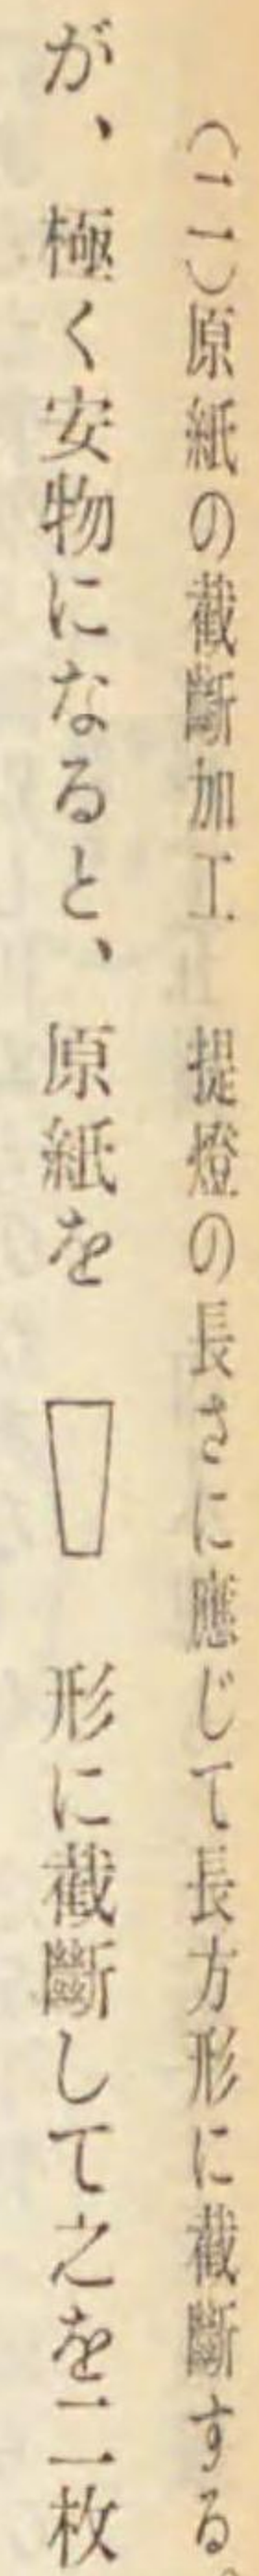 (二)原紙の截斷加工　提燈の長さに應じて長方形に截斷する。
が、極く安物になると、原紙を　形に截斷して之を二枚